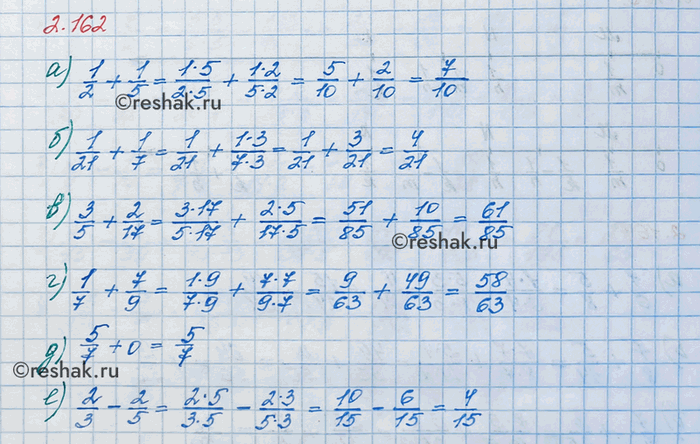 2.162
а) 1/2 + 1/5 = 1·5/2·5 + 1·2/5·2 = 5/10 + 2/10 = 7/10
©reshak.ru
б) 1/21 + 1/7 = 1/21 + 1·3/7·3 = 1/21 + 3/21 = 4/21
в) 3/5 + 2/17 = 3·17/5·17 + 2·5/17·5 = 51/85 + 10/85 = 61/85
©reshak.ru
г) 1/7 + 7/9 = 1·9/7·9 + 7·7/9·7 = 9/63 + 49/63 = 58/63
д) 5/7 + 0 = 5/7
©reshak.ru
е) 2/3 - 2/5 = 2·5/3·5 - 2·3/5·3 = 10/15 - 6/15 = 4/15